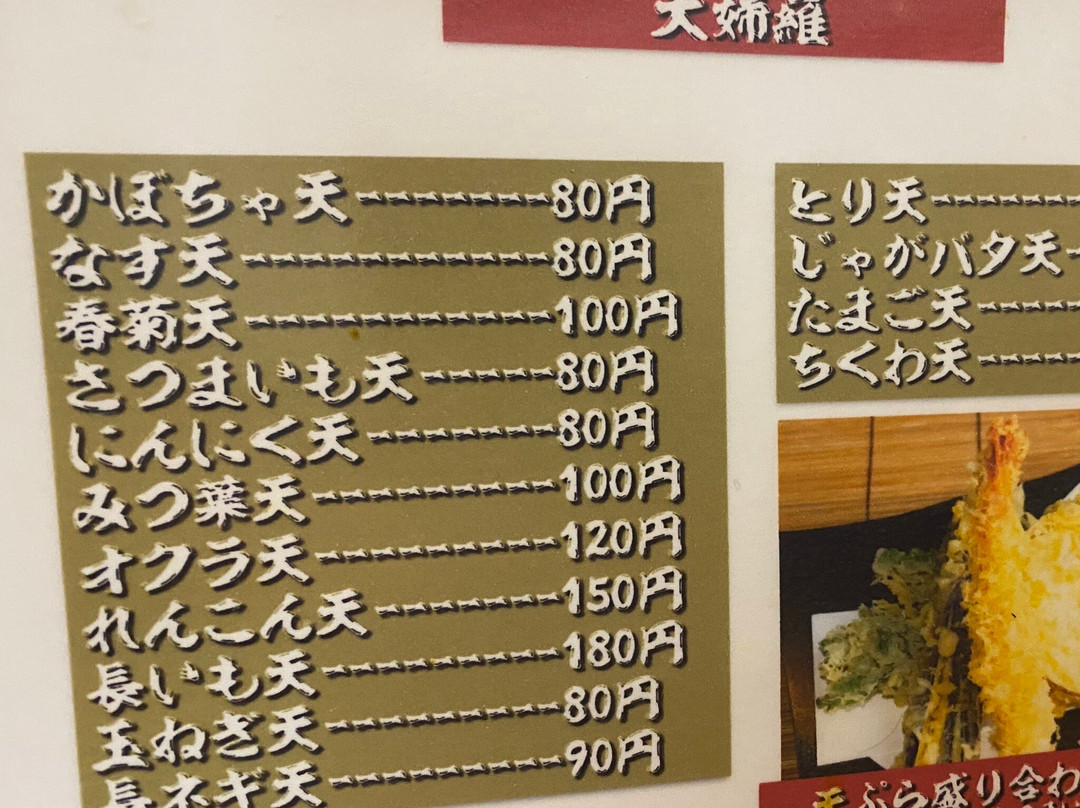 天婦羅
かぼちゃ天-------80円
なす天-----------80円
春菊天-----------100円
さつまいも天-----80円
にんにく天-------80円
みつ葉天---------100円
オクラ天---------120円
れんこん天-------150円
長いも天---------180円
玉ねぎ天---------80円
長ネギ天---------90円
とり天------
じゃがバタ天-
たまご天----
ちくわ天----
天ぷら盛り合わ